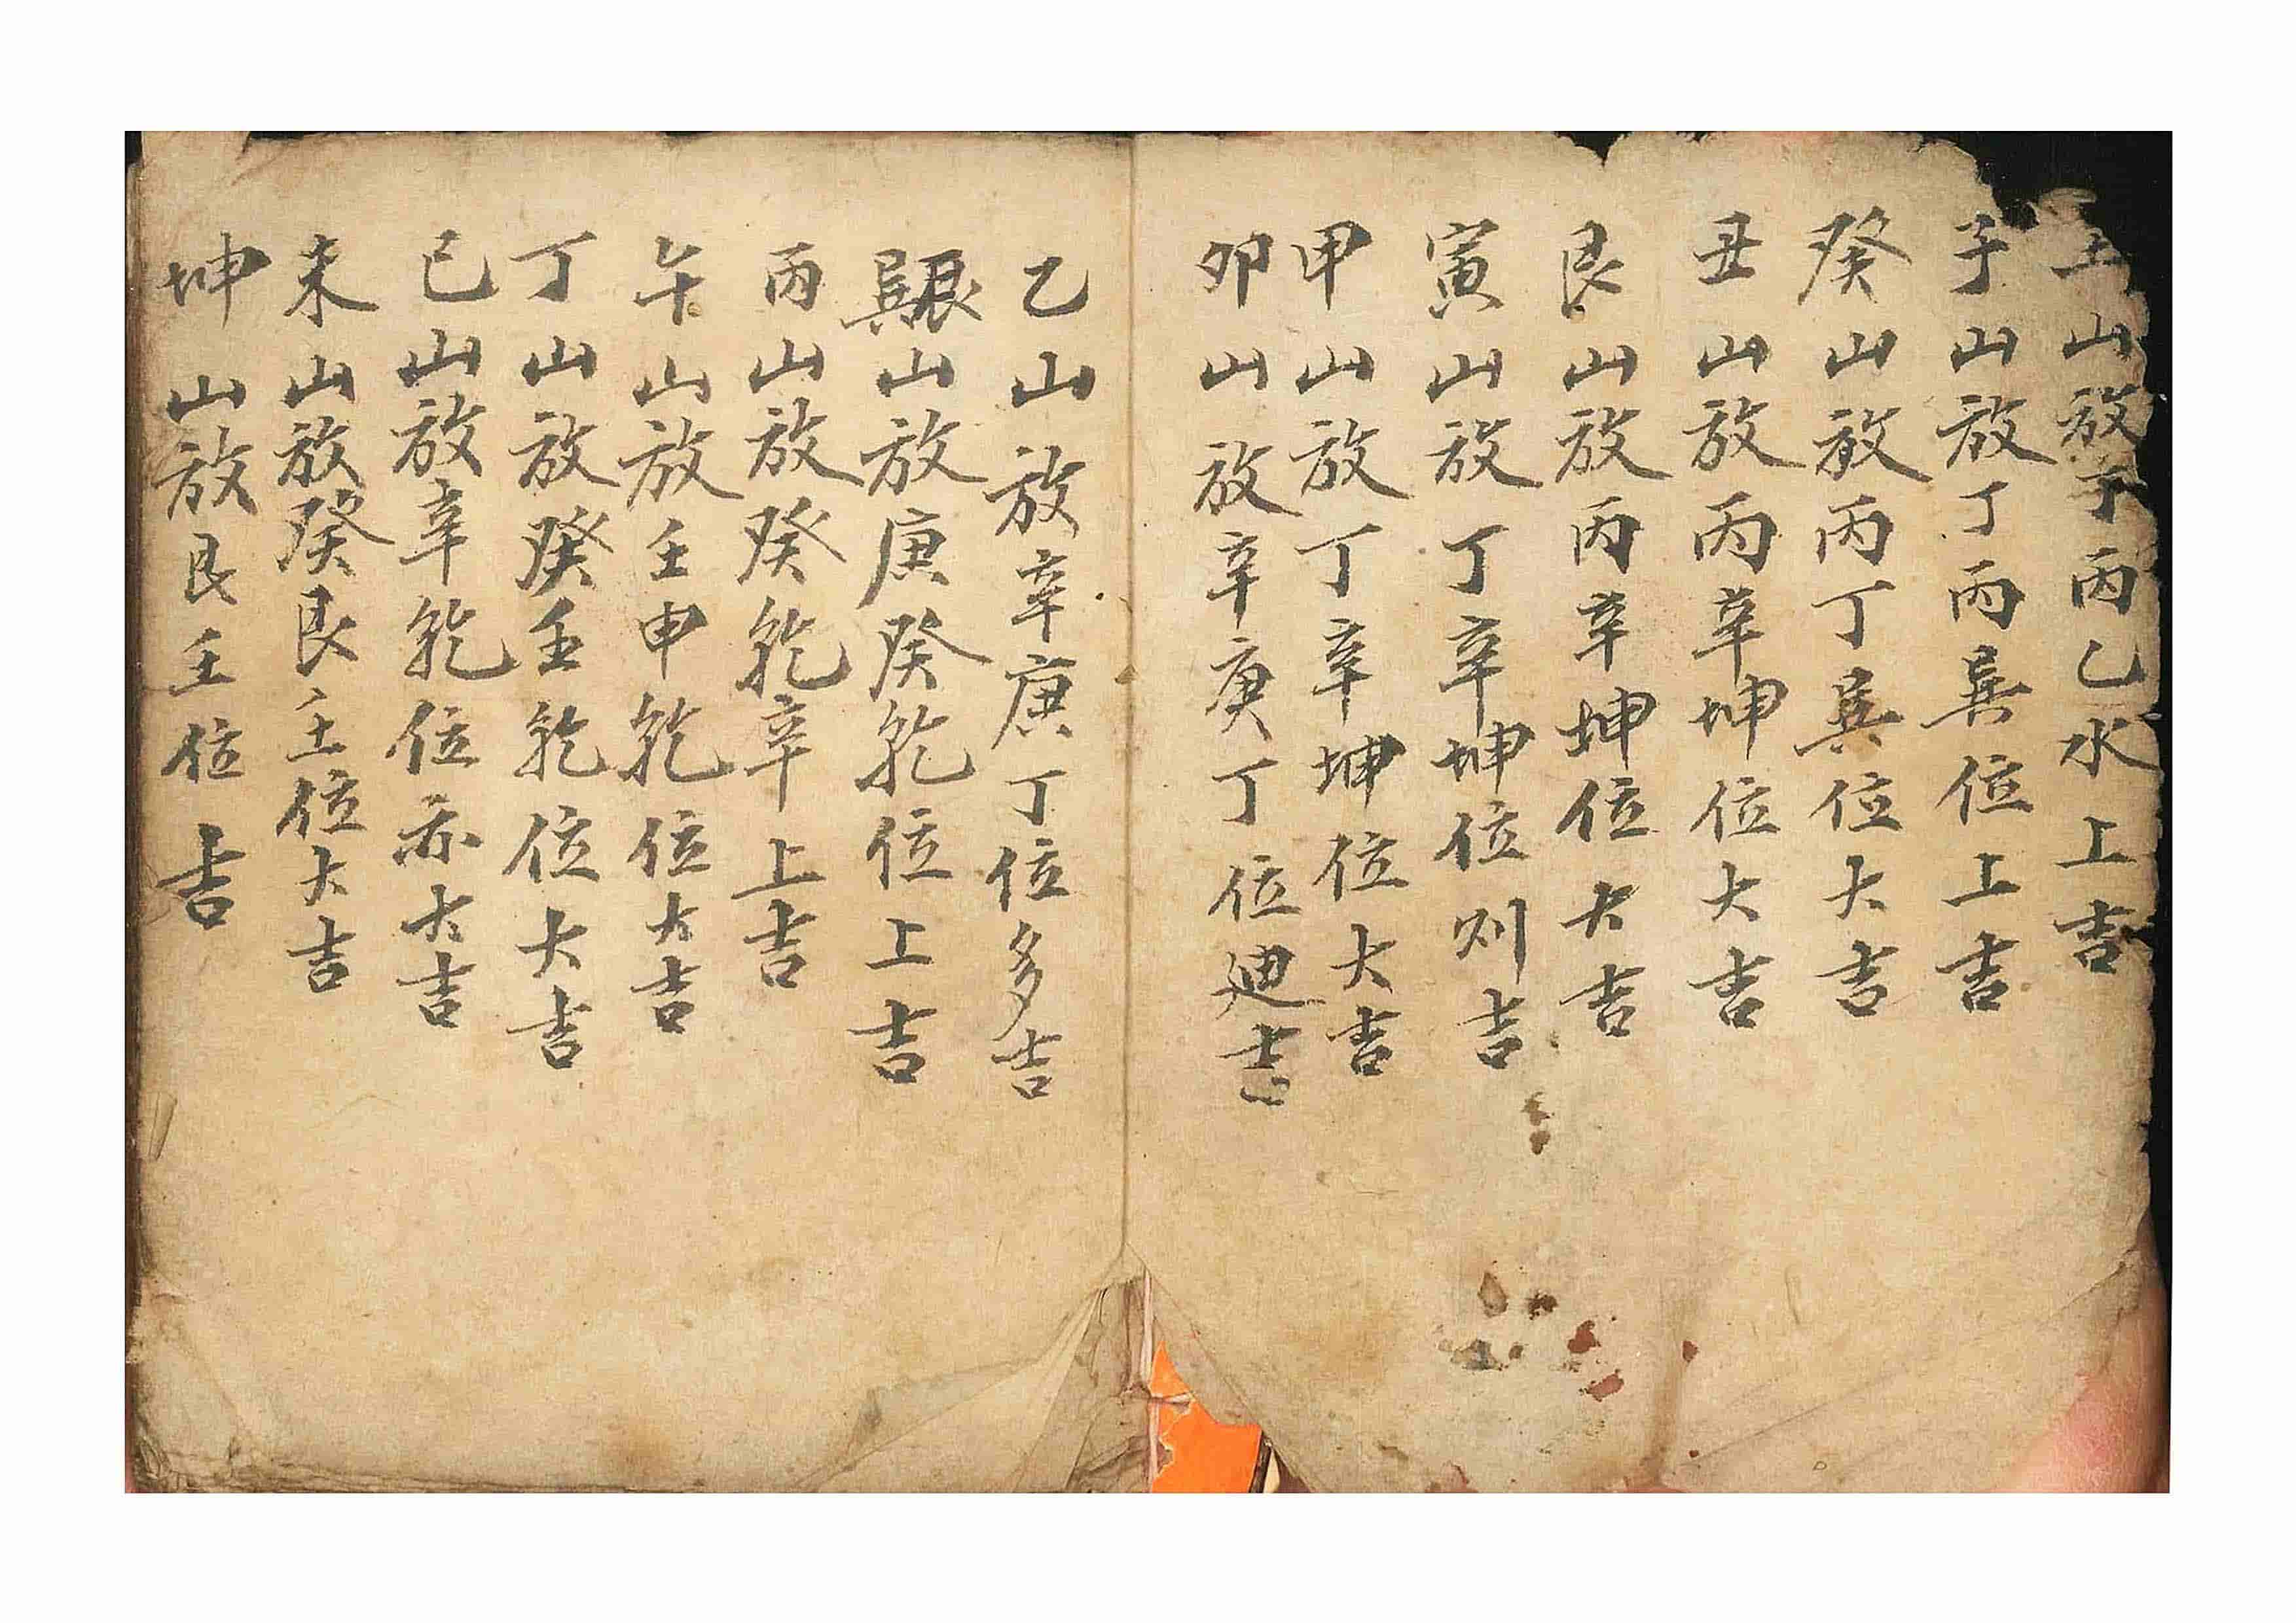 壬山放子丙乙水上吉
子山放丁丙巽位上吉
癸山放丙丁巽位大吉
丑山放丙辛坤位大吉
艮山放丙辛坤位大吉
寅山放丁辛坤位则吉
甲山放丁辛坤位大吉
卯山放辛庚丁位迪吉
乙山放辛庚丁位多吉
巽山放庚癸乾位上吉
丙山放癸乾辛上吉
午山放壬申乾位大吉
丁山放癸壬乾位大吉
巳山放辛乾位亦大吉
未山放癸艮壬位大吉
坤山放艮壬位上吉